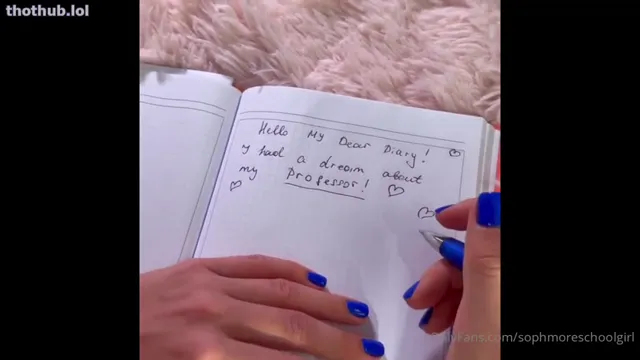 thothub.lol
Hello My Dear Diary!
I had a dream about
my Professor!
onlyfans.com/sophmoreschoolgirl